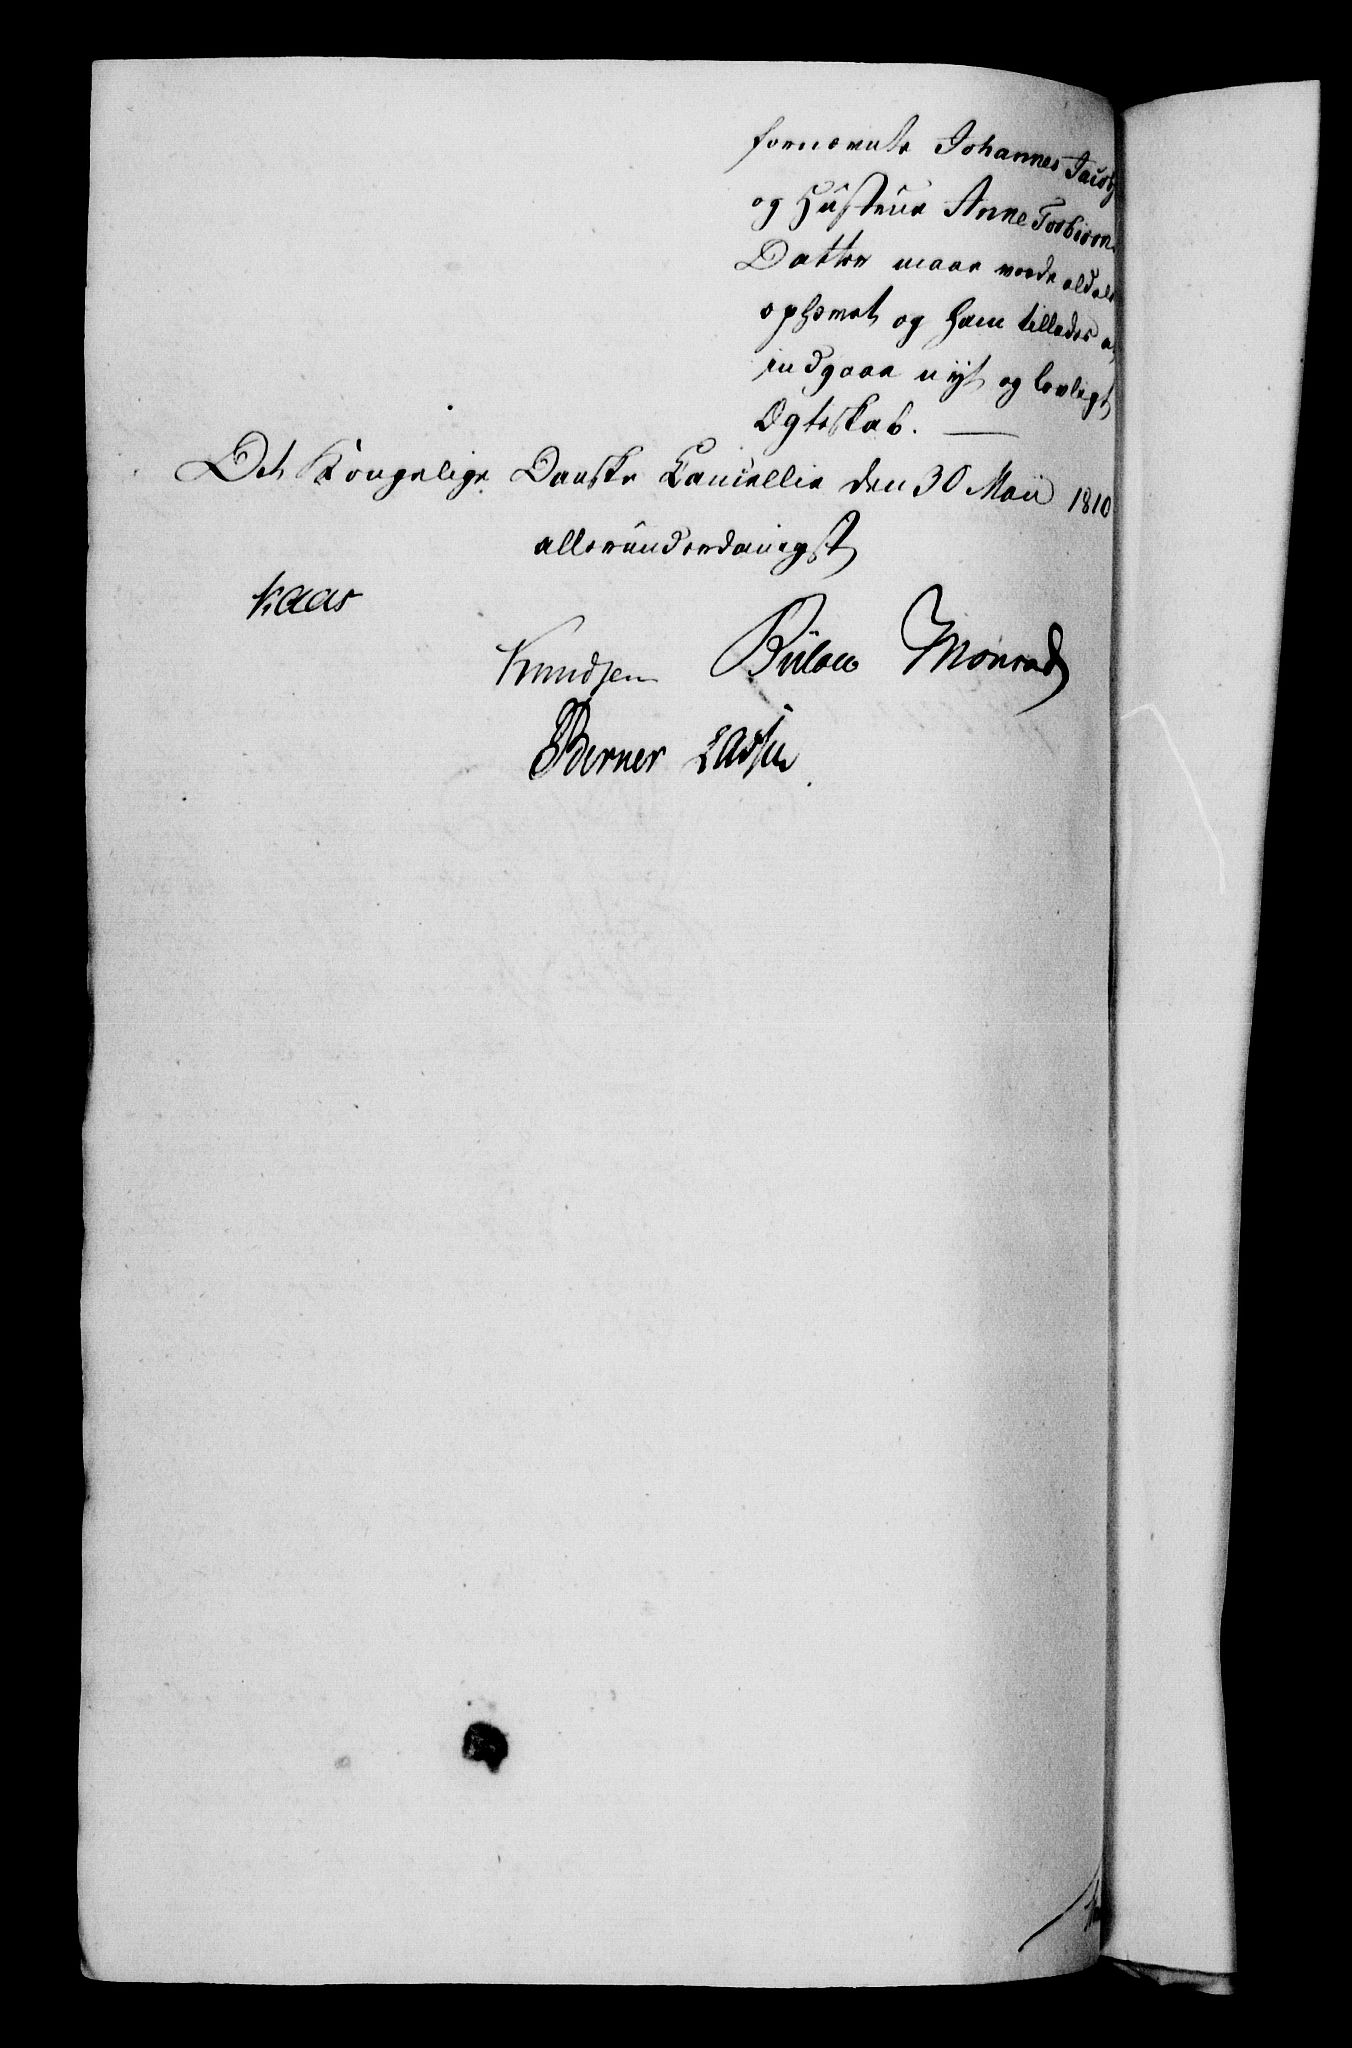 fornævnte Johannes Jacobs
og Hustrue Anne Torbiørns
Datter maae vorde aldeles
ophævet og ham tillades at
indgaae nyt og lovligt
Ægteskab. —
Det Kongelige Danske Cancellie den 30 Maii 1810
allerunderdanigst
Kaas
Knudsen Bülow Monrad
Berner Lassen